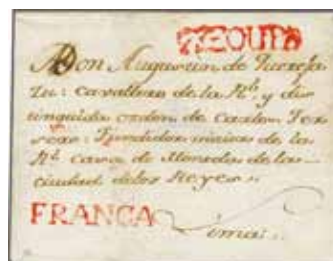 AREQUIPA
A Don Augustin de
In: cavallero de la Rl. y dis
tinguida orden de Carlos Ter
sero: Fundidor maior de la
Rl. Casa de Moneda de la
ciudad delos Reyes.
FRANCA
Lima.